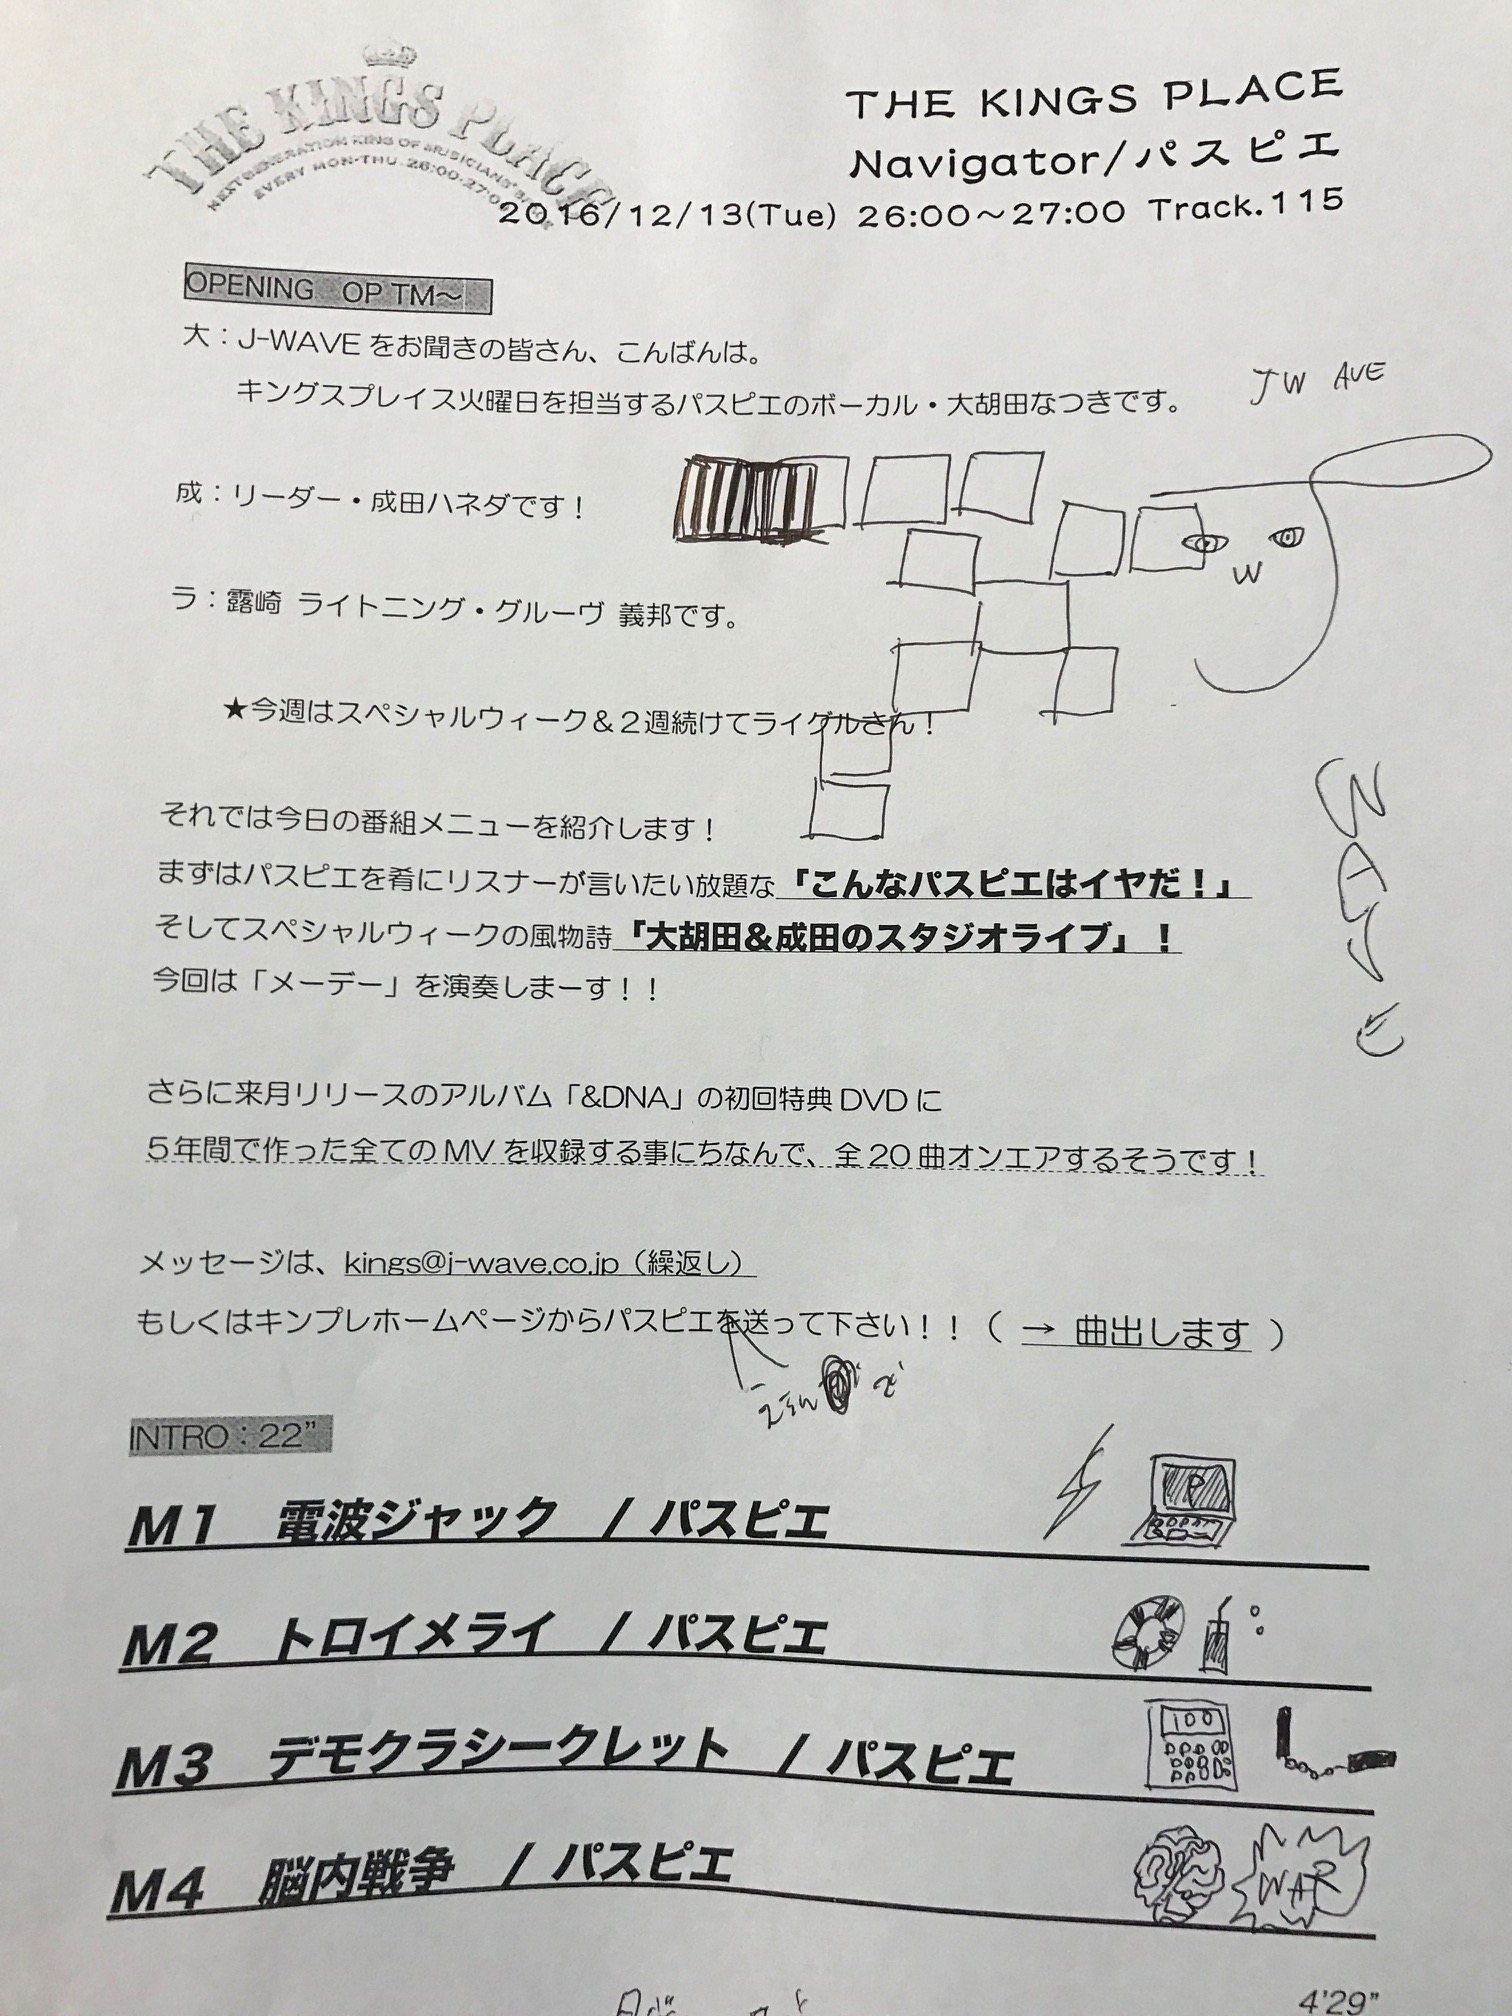 THE KINGS PLACE
NEXT GENERATION KING OF MUSICIANS'
EVERY MON-THU. 26:00-27:00
THE KINGS PLACE
Navigator/パスピエ
2016/12/13(Tue) 26:00～27:00 Track.115
OPENING OP TM～
大：J-WAVEをお聞きの皆さん、こんばんは。
キングスプレイス火曜日を担当するパスピエのボーカル・大胡田なつきです。
JW AVE
成：リーダー・成田ハネダです！
W
ラ：露崎 ライトニング・グルーヴ 義邦です。
★今週はスペシャルウィーク＆２週続けてライグルさん！
それでは今日の番組メニューを紹介します！
まずはパスピエを肴にリスナーが言いたい放題な「こんなパスピエはイヤだ！」
そしてスペシャルウィークの風物詩「大胡田＆成田のスタジオライブ」！
今回は「メーデー」を演奏しまーす！！
さらに来月リリースのアルバム「&DNA」の初回特典DVDに
５年間で作った全てのMVを収録する事にちなんで、全20曲オンエアするそうです！
メッセージは、kings@j-wave.co.jp（繰返し）
もしくはキンプレホームページからパスピエを送って下さい！！（ → 曲出します ）
INTRO：22”
M1 電波ジャック / パスピエ
P
M2 トロイメライ / パスピエ
M3 デモクラシークレット / パスピエ
100
M4 脳内戦争 / パスピエ
WAR
4’29”